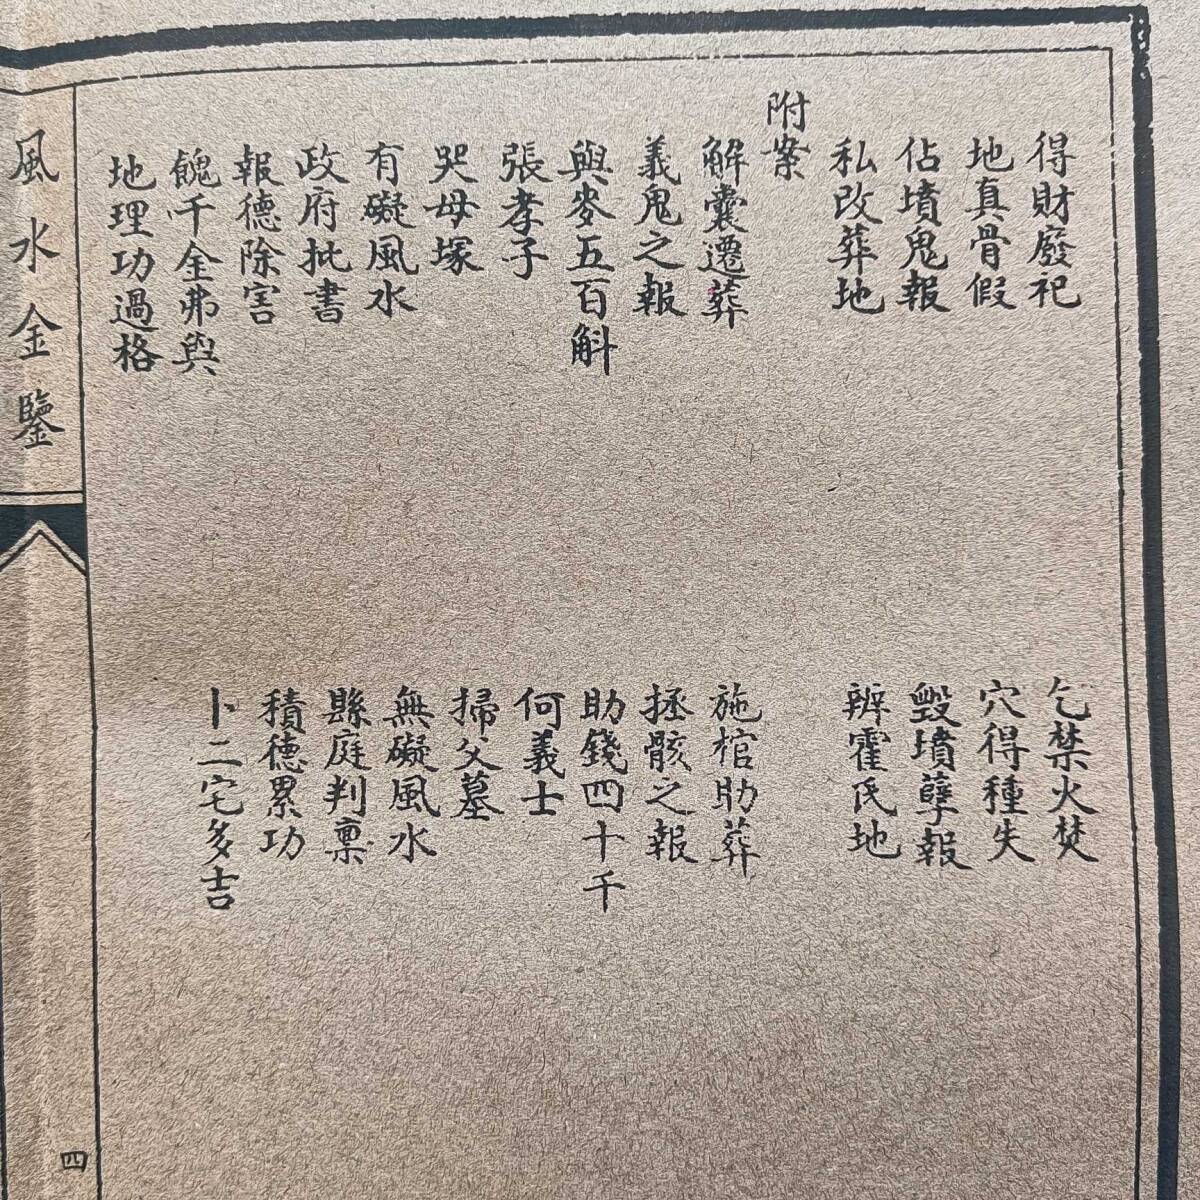 得財廢祀
乞禁火焚
地真骨假
穴得種失
佔墳鬼報
毀墳孽報
私改葬地
辨霍氏地
附案
解囊遷葬
施棺助葬
義鬼之報
拯骸之報
與麥五百斛
助錢四十千
張孝子
何義士
哭母塚
掃父墓
有礙風水
無礙風水
政府批書
縣庭判稟
報德除害
積德累功
餽千金弗與
卜二宅多吉
地理功過格
風水金鑒
四